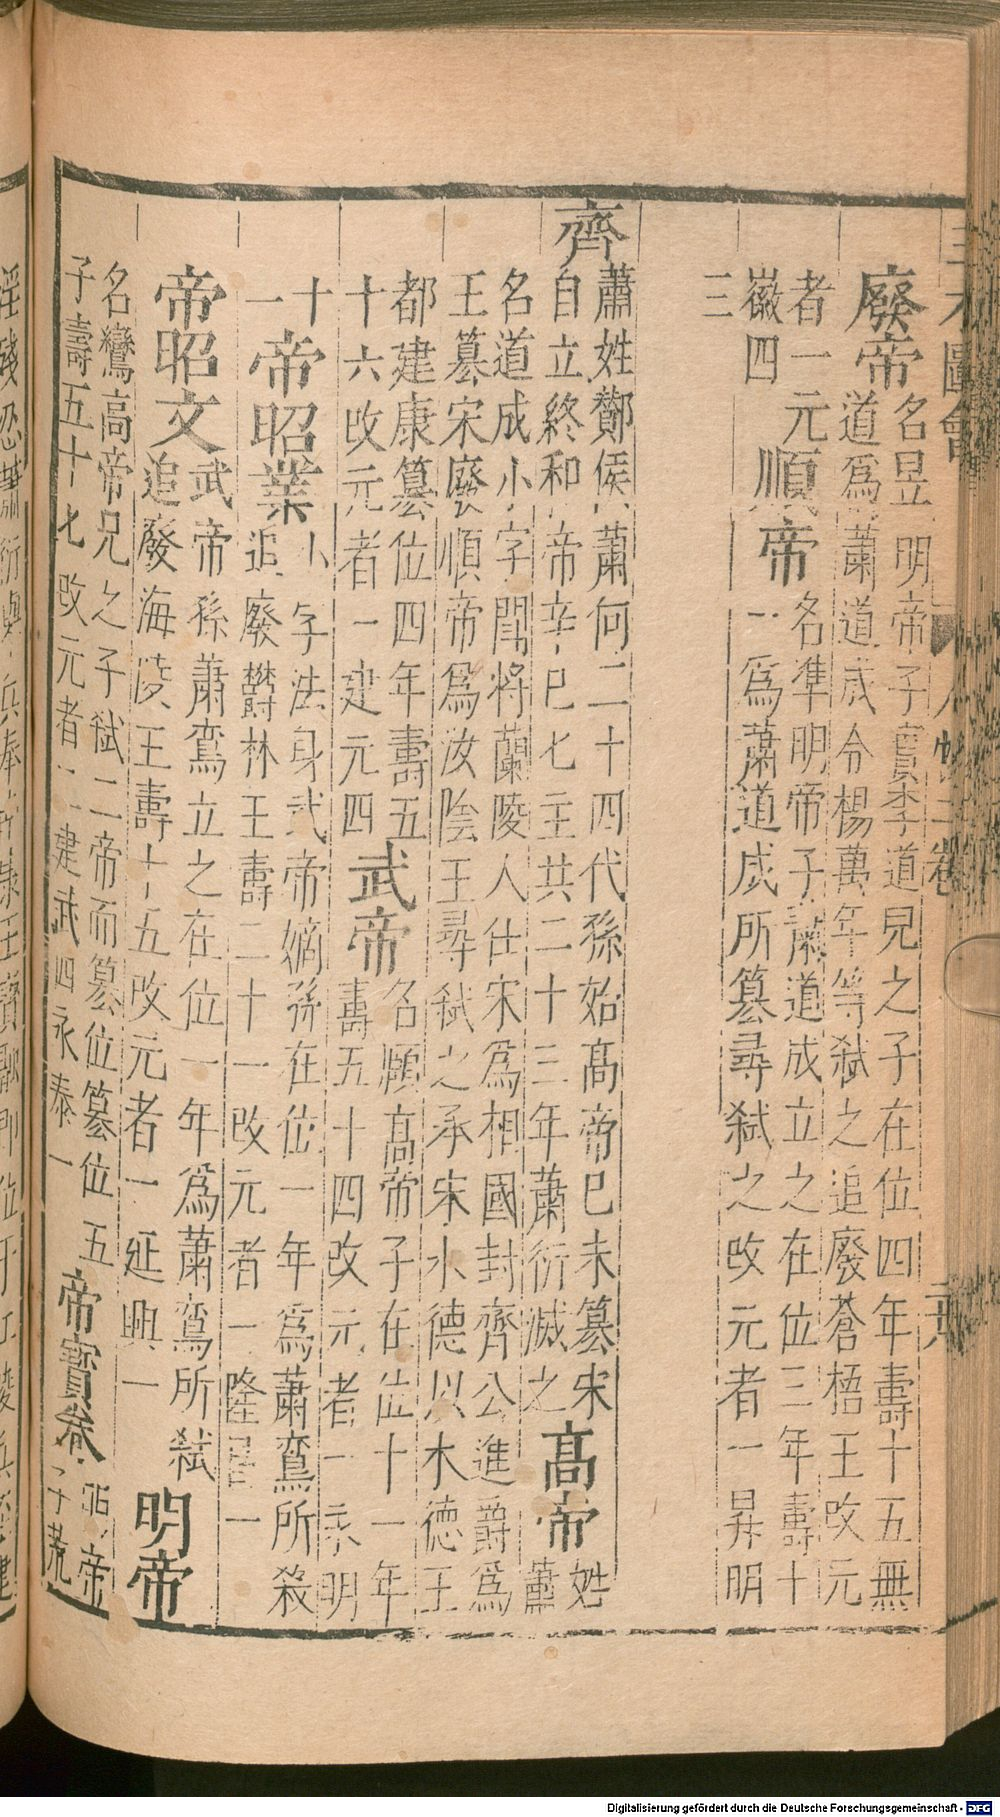 三才圖會
人物二卷
廢帝
名昱明帝子實李道兒之子在位四年壽十五無
道爲蕭道成令楊萬年等弑之追廢蒼梧王改元
者一元
徽四
順帝
名準明帝子蕭道成立之在位三年壽十
一爲蕭道成所簒尋弑之改元者一昇明
三
齊
蕭姓酇侯蕭何二十四代孫始高帝巳未簒宋
自立終和帝辛巳七主共二十三年蕭衍滅之
高帝
姓蕭
名道成小字閗將蘭陵人仕宋爲相國封齊公進爵爲
王簒宋廢順帝爲汝陰王尋弑之承宋水德以木德王
都建康簒位四年壽五
十六改元者一建元四
武帝
名賾高帝子在位十一年
壽五十四改元者一永明
十
一
帝昭業
小字法身武帝嫡孫在位一年爲蕭鸞所殺
追廢欝林王壽二十一改元者一隆昌一
帝昭文
武帝孫蕭鸞立之在位一年爲蕭鸞所弑
追廢海陵王壽十五改元者一延興一
明帝
名鸞高帝兄之子弑二帝而簒位簒位五
子壽五十七改元者二建武四永泰一
帝寳卷
明帝
子荒
淫殘忍
蕭衍
兵奉
王寳融即位于江陵
Digitalisierung gefördert durch die Deutsche Forschungsgemeinschaft - DFG